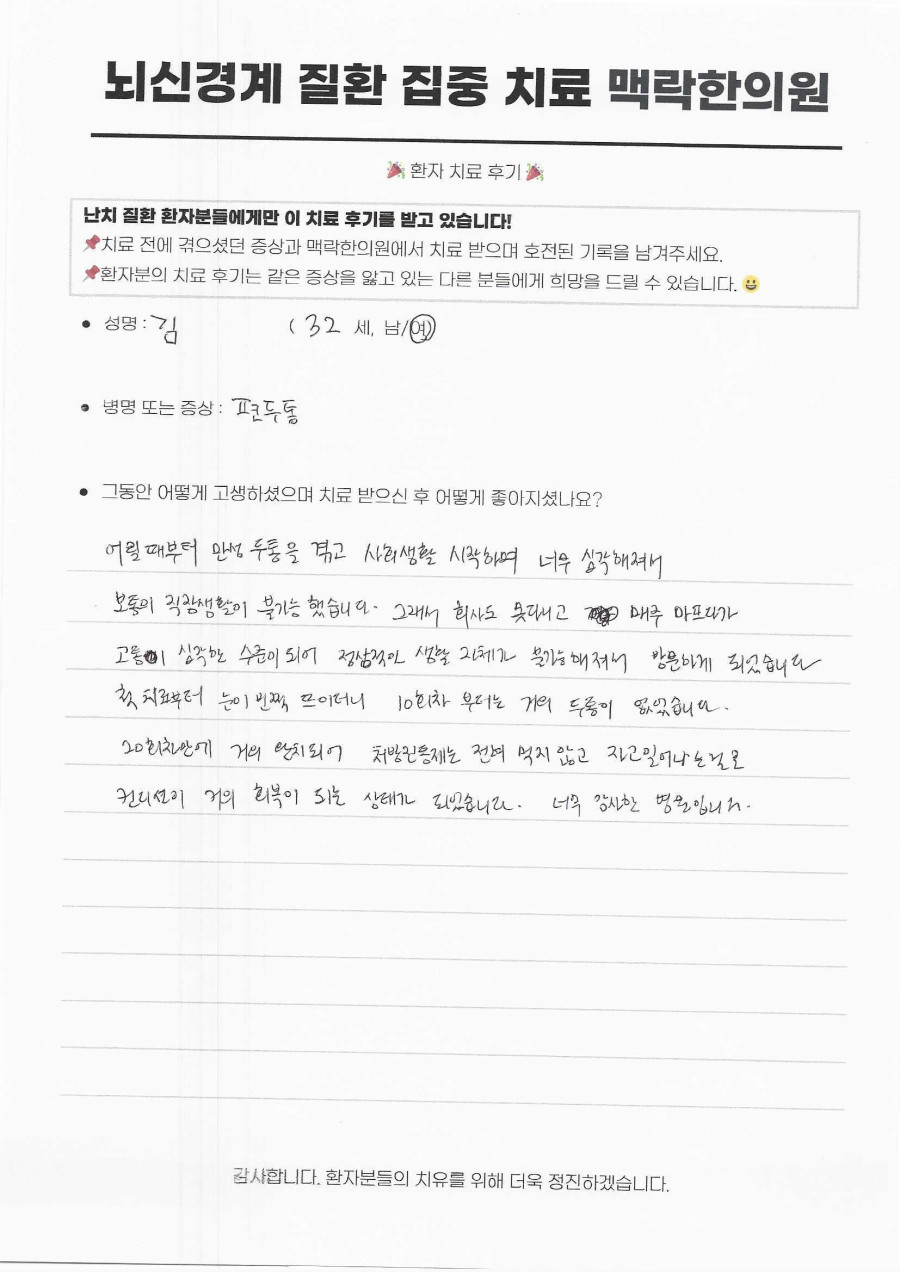 뇌신경계 질환 집중 치료 맥락한의원
환자 치료 후기
난치 질환 환자분들에게만 이 치료 후기를 받고 있습니다!
치료 전에 겪으셨던 증상과 맥락한의원에서 치료 받으며 호전된 기록을 남겨주세요.
환자분의 치료 후기는 같은 증상을 앓고 있는 다른 분들에게 희망을 드릴 수 있습니다.
• 성명 : 김 ( 32 세, 남/여)
• 병명 또는 증상 : 편두통
• 그동안 어떻게 고생하셨으며 치료 받으신 후 어떻게 좋아지셨나요?
어릴때부터 만성 두통을 겪고 사회생활 시작하며 너무 심각해져서
보통의 직장생활이 불가능했습니다. 그래서 회사도 못다니고 매주 마프다가
고통이 심각한 수준이 되어 정상적인 생활 자체가 불가능해져서 방문하게 되었습니다
첫 치료부터 눈이 번쩍 뜨이더니 10회차 부터는 거의 두통이 없었습니다.
20회차만에 거의 완치되어 처방진통제는 전혀 먹지 않고 자고일어나는걸로
컨디션이 거의 회복이 되는 상태가 되었습니다. 너무 감사한 병원입니다.
감사합니다. 환자분들의 치유를 위해 더욱 정진하겠습니다.